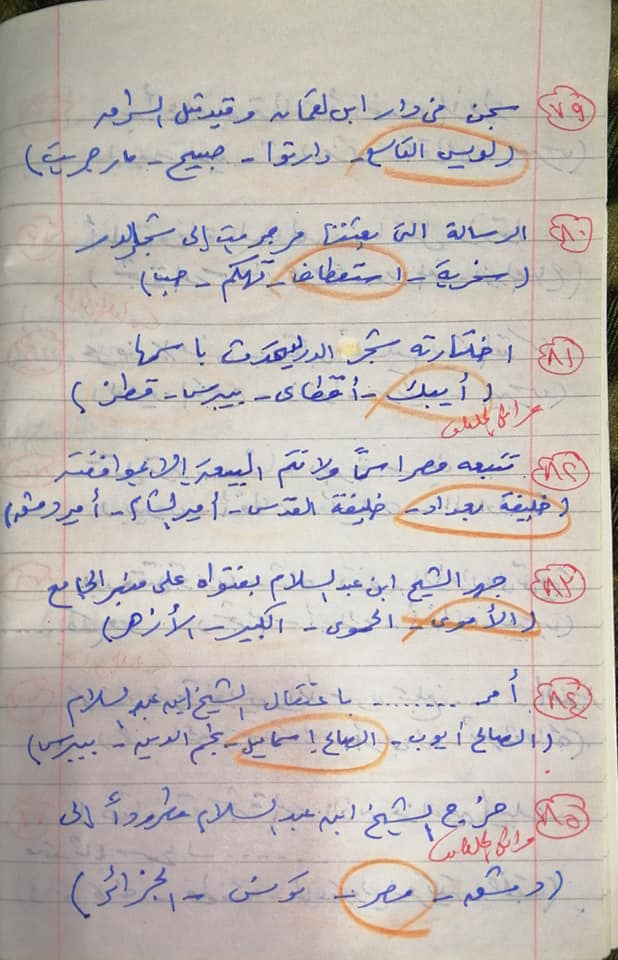 ٧٩ سجن في دار ابن لقمان وقيد تبل الشرامه
( لويس التاسع - دارتوا - صبيح - مارجريت )
٨٠ الرسالة التى بعثتها مرجريت إلى شجر الدر
( سخرية - استعطاف - تهكم - حب )
٨١ اختارته شجر الدر ليتحدث باسمها
( أيبك - أقطاى - بيبرس - قطز )
٨٢ تتبعه مصر اسماً ولا تتم البيعة إلا بموافقته
( خليفة بغداد - خليفة القدس - أمير الشام - أمير دمشق )
٨٣ جهر الشيخ ابن عبد السلام بفتواه على منبر الجامع
( الأموى - الحموى - الكبير - الأزهر )
٨٤ أمر ........ باعتقال الشيخ ابن عبد السلام
( الصالح أيوب - الصالح إسماعيل - نجم الدين - بيبرس )
٨٥ خروج الشيخ ابن عبد السلام مطروداً إلى
( دمشق - مصر - تونس - الجزائر )